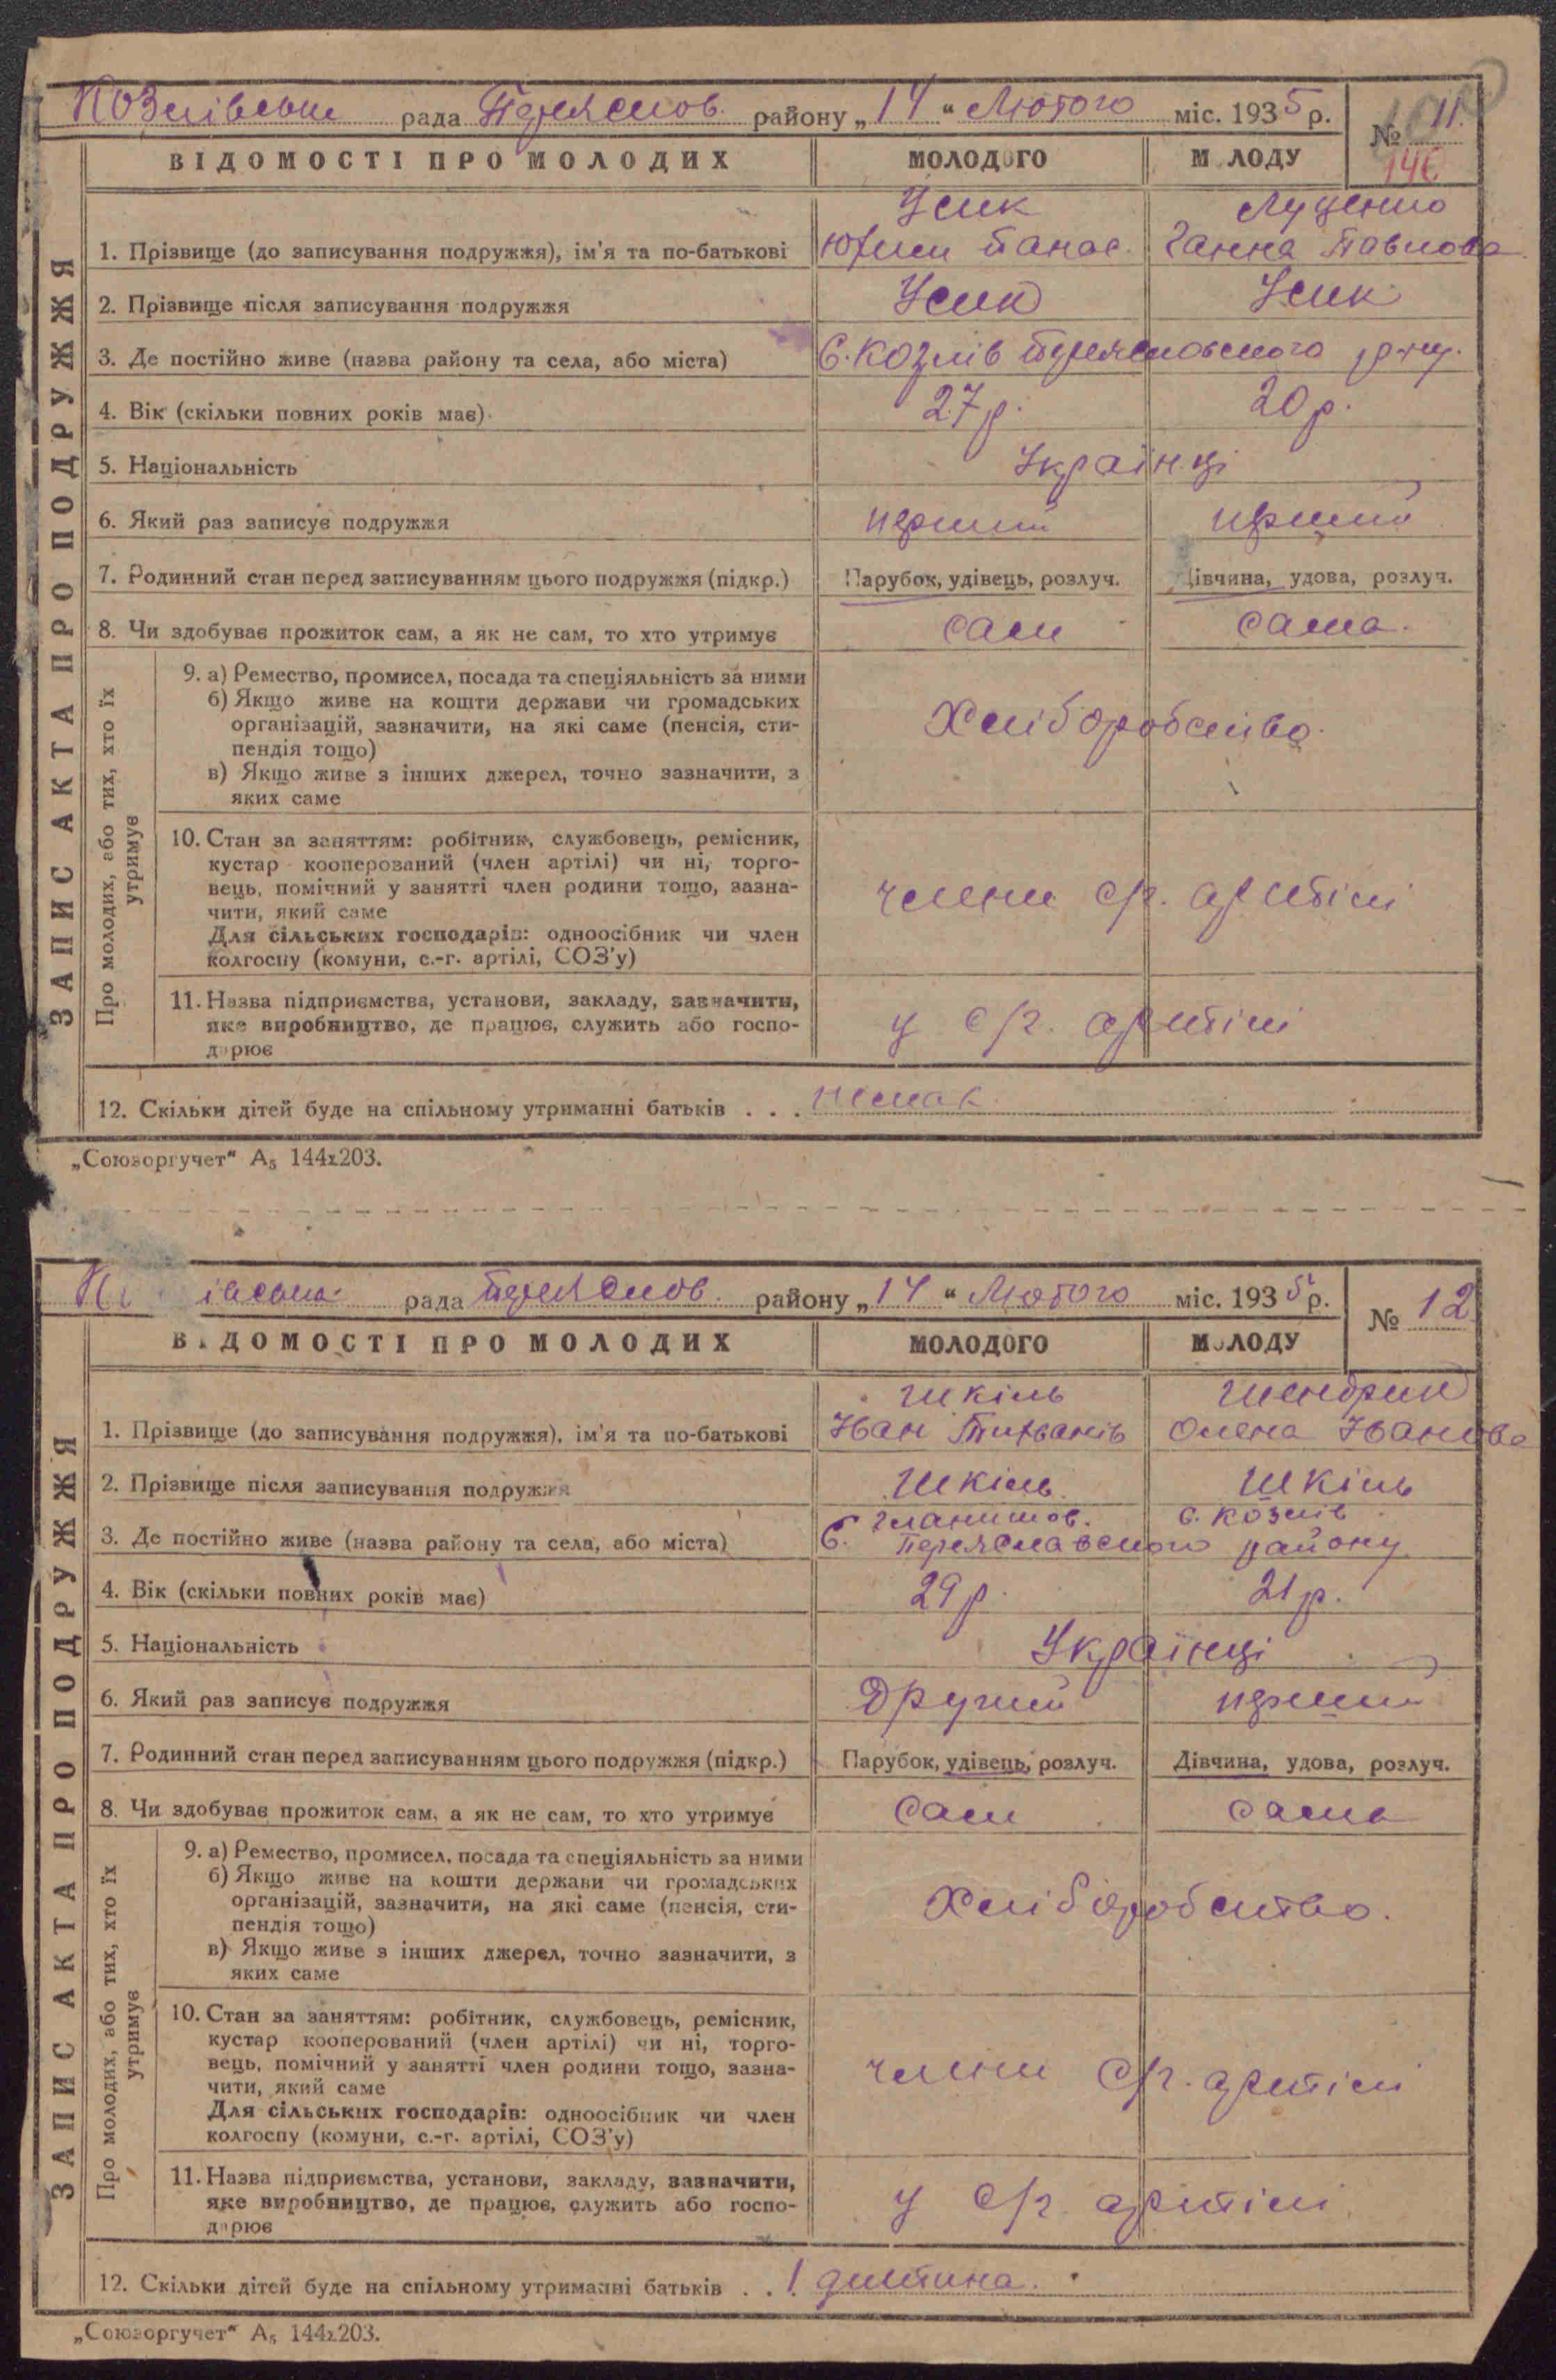 Козлівська рада Переяслов. району „14“ Лютого міс. 1935 р. № 11.
146
ВІДОМОСТІ ПРО МОЛОДИХ МОЛОДОГО МОЛОДУ
ЗАПИС АКТА ПРО ПОДРУЖЖЯ
Усик Луценко
1. Прізвище (до записування подружжя), ім'я та по-батькові Юхим Панас. Ганна Павлова
2. Прізвище після записування подружжя Усик Усик
3. Де постійно живе (назва району та села, або міста) С. Козлів Переясловського р-ну.
4. Вік (скільки повних років має) 27 р. 20 р.
5. Національність Українці
6. Який раз записує подружжя перший перший
7. Родинний стан перед записуванням цього подружжя (підкр.) Парубок, удівець, розлуч. Дівчина, удова, розлуч.
8. Чи здобуває прожиток сам, а як не сам, то хто утримує сам сама.
Про молодих, або тих, хто їх утримує
9. а) Ремество, промисел, посада та спеціяльність за ними
б) Якщо живе на кошти держави чи громадських
організацій, зазначити, на які саме (пенсія, сти-
пендія тощо)
Хліборобство.
в) Якщо живе з інших джерел, точно зазначити, з
яких саме
10. Стан за заняттям: робітник, службовець, ремісник,
кустар кооперований (член артілі) чи ні, торго-
вець, помічний у занятті член родини тощо, зазна-
чити, який саме
члени с/г. артілі
Для сільських господарів: одноосібник чи член
колгоспу (комуни, с.-г. артілі, СОЗ'у)
11. Назва підприємства, установи, закладу, зазначити,
яке виробництво, де працює, служить або госпо-
дарює
у с/г. артілі
12. Скільки дітей буде на спільному утриманні батьків . . . немає
„Союзоргучет“ А₅ 144х203.
рада Переяслов. району „14“ Лютого міс. 1935 р. № 12
ВІДОМОСТІ ПРО МОЛОДИХ МОЛОДОГО МОЛОДУ
ЗАПИС АКТА ПРО ПОДРУЖЖЯ
Шкіль Шендрик
1. Прізвище (до записування подружжя), ім'я та по-батькові Іван Олена Іванова
2. Прізвище після записування подружжя Шкіль Шкіль
3. Де постійно живе (назва району та села, або міста) С. Гланишов. с. Козлів
Переяславського району
4. Вік (скільки повних років має) 29 р. 21 р.
5. Національність Українці
6. Який раз записує подружжя Другий перший
7. Родинний стан перед записуванням цього подружжя (підкр.) Парубок, удівець, розлуч. Дівчина, удова, розлуч.
8. Чи здобуває прожиток сам, а як не сам, то хто утримує сам сама
Про молодих, або тих, хто їх утримує
9. а) Ремество, промисел, посада та спеціяльність за ними
б) Якщо живе на кошти держави чи громадських
організацій, зазначити, на які саме (пенсія, сти-
пендія тощо)
Хліборобство.
в) Якщо живе з інших джерел, точно зазначити, з
яких саме
10. Стан за заняттям: робітник, службовець, ремісник,
кустар кооперований (член артілі) чи ні, торго-
вець, помічний у занятті член родини тощо, зазна-
чити, який саме
члени с/г. артілі
Для сільських господарів: одноосібник чи член
колгоспу (комуни, с.-г. артілі, СОЗ'у)
11. Назва підприємства, установи, закладу, зазначити,
яке виробництво, де працює, служить або госпо-
дарює
у с/г. артілі
12. Скільки дітей буде на спільному утриманні батьків . . . 1 дитина.
„Союзоргучет“ А₅ 144х203.